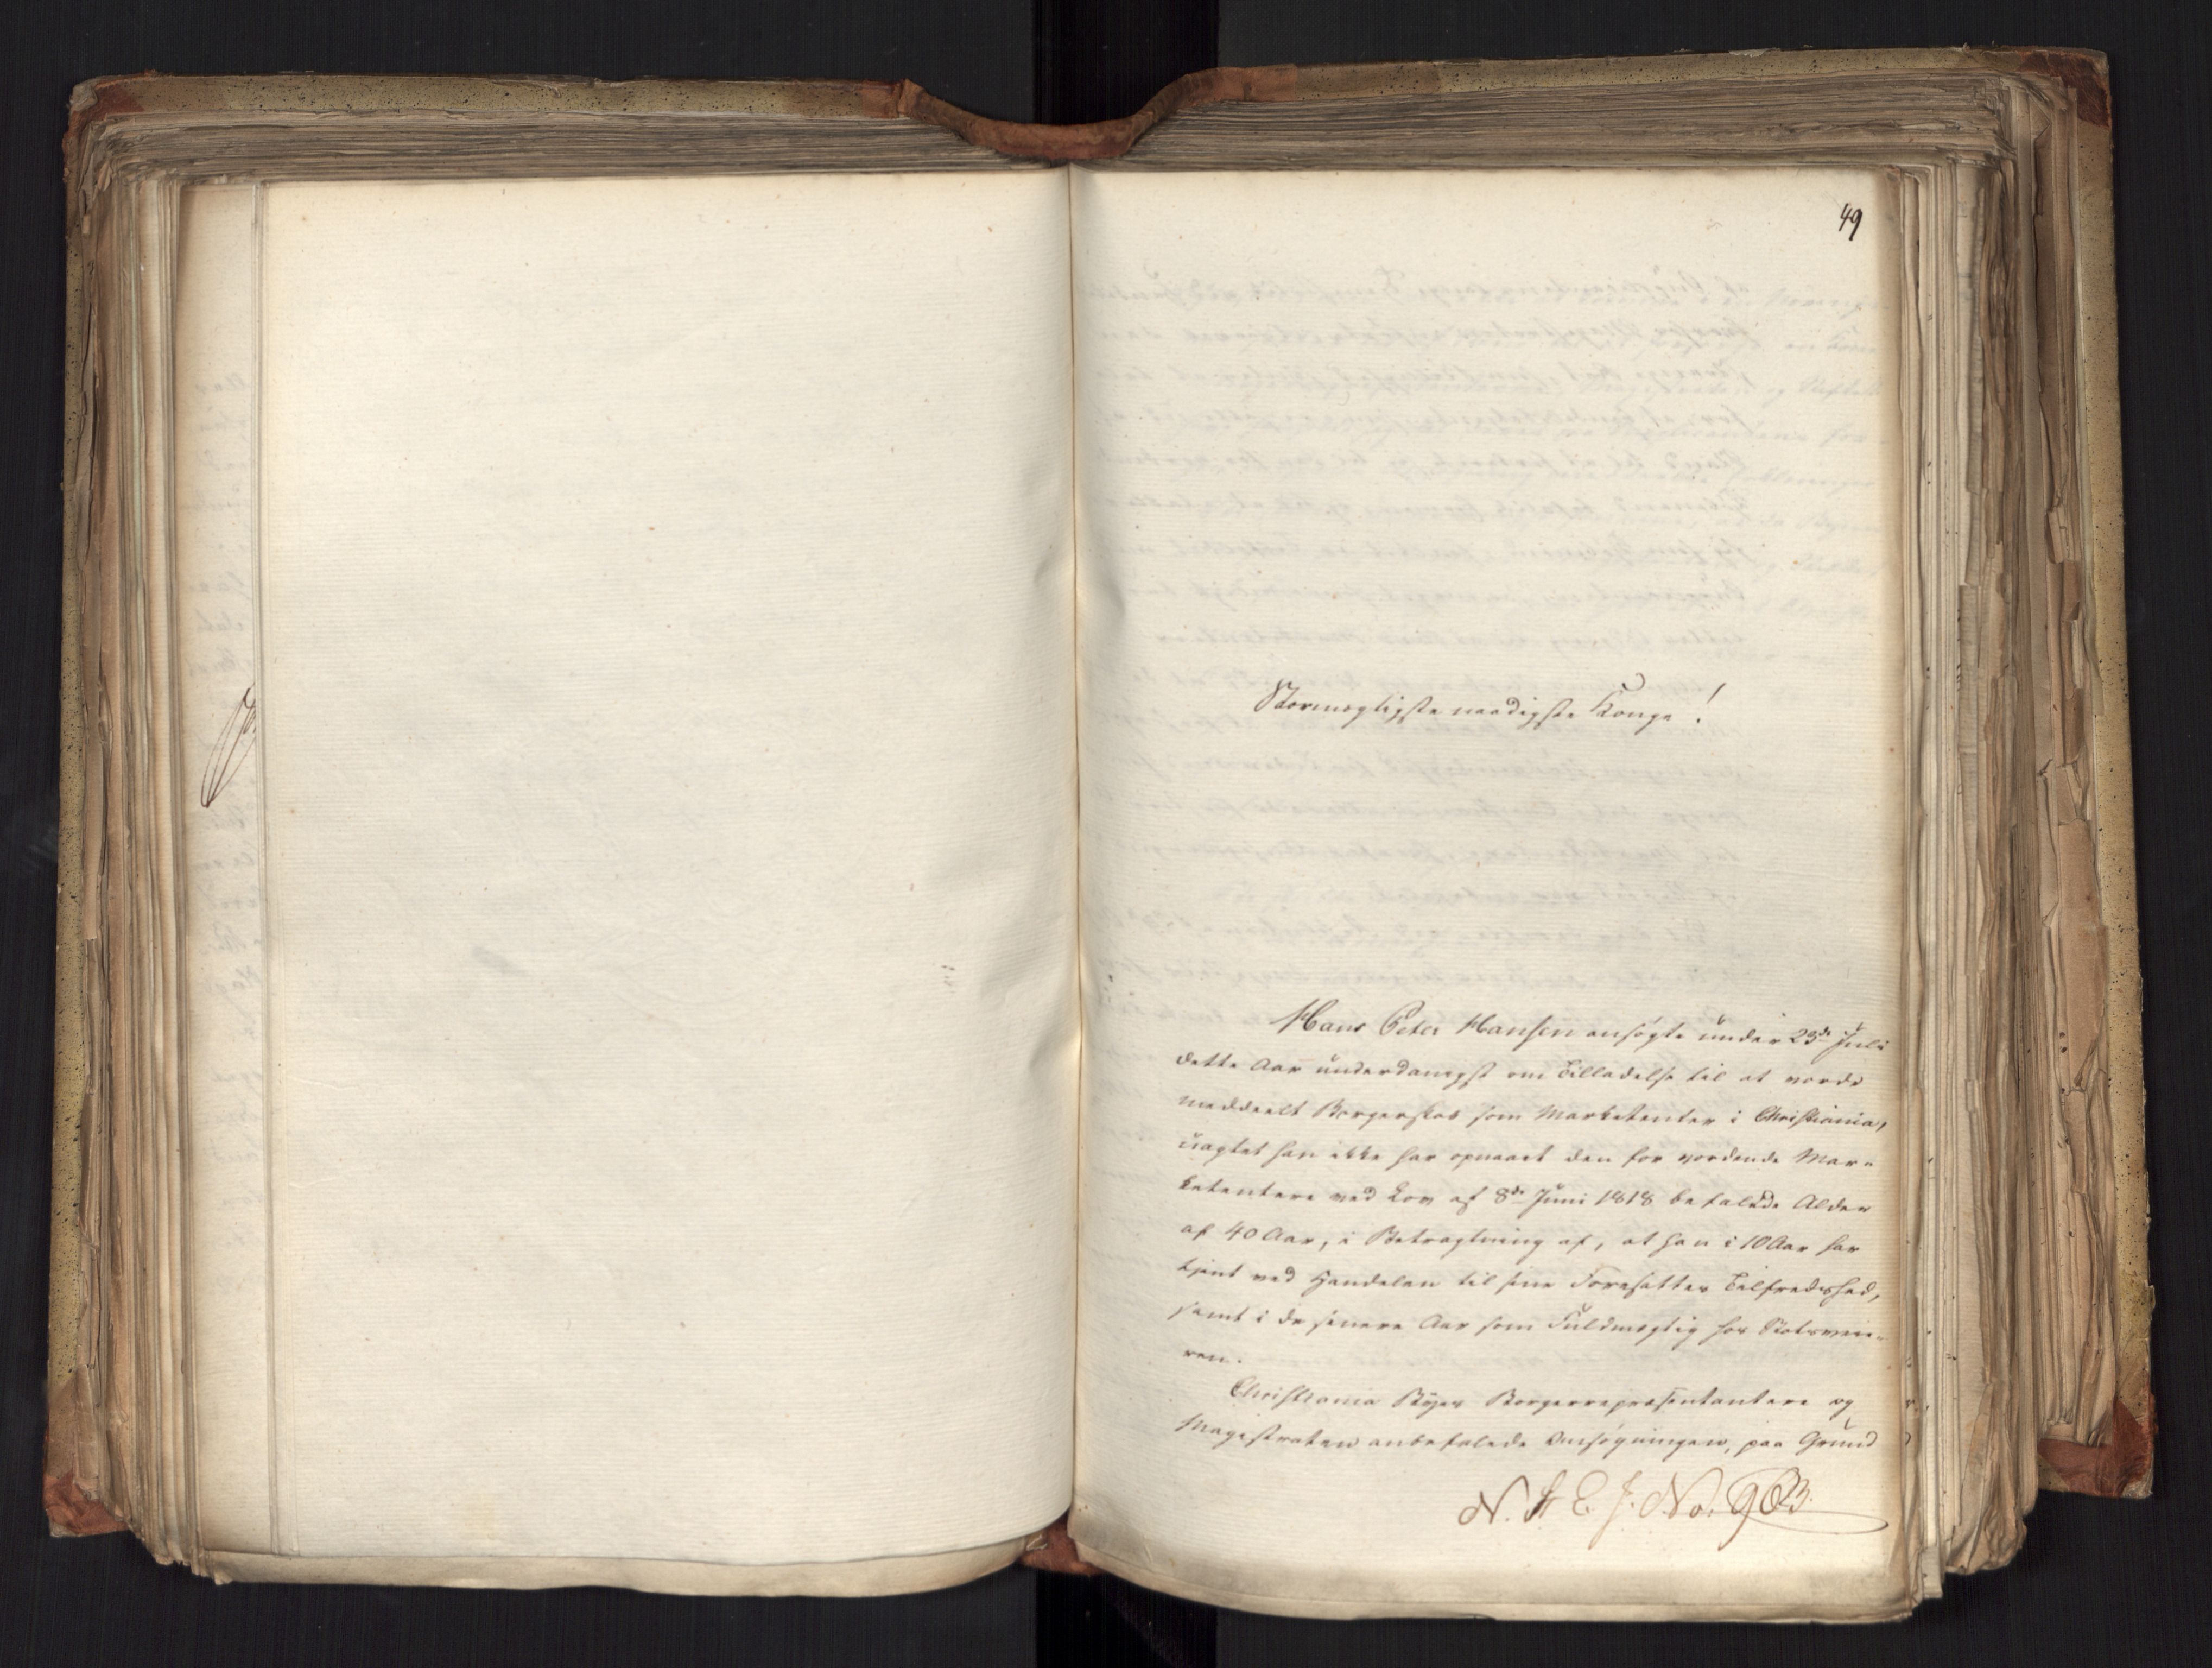 49
Stormægtigste naadigste Konge!
Hans Peter Hansen ansøgte under 23de Juli
dette Aar underdanigst om Tilladelse til at vorde
meddeelt Borgerskab som Marketenter i Christiania,
uagtet han ikke har opnaaet den for vordende Mar-
ketentere ved Lov af 8de Juni 1818 befalede Alder
af 40 Aar, i Betragtning af, at han i 10 Aar har
tjent ved Handelen til sine Foresattes Tilfredshed,
samt i de senere Aar som Fuldmægtig hos
Christiania Byes Borgerrepræsentantere og
Magistraten anbefalede Ansøgningen, paa Grund
N. J. No. 903.